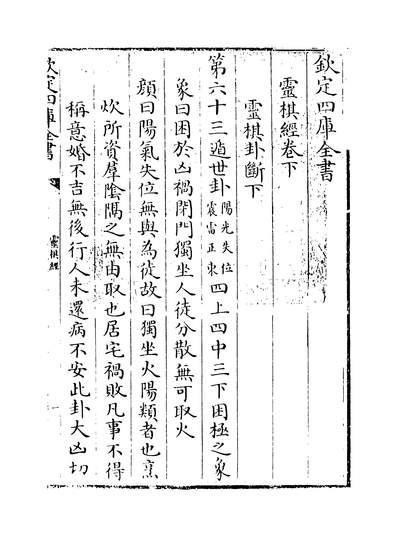 欽定四庫全書
靈棋經卷下
靈棋卦斷下
第六十三遁世卦 陽光失位 震雷正東 四上四中三下困極之象
象曰困於凶禍閉門獨坐人徒分散無可取火
顔曰陽氣失位無與為徒故曰獨坐火陽類者也烹
炊所資羣隂隅之無由取也居宅禍敗凡事不得
稱意婚不吉無後行人未還病不安此卦大凶切
欽定四庫全書
靈棋經